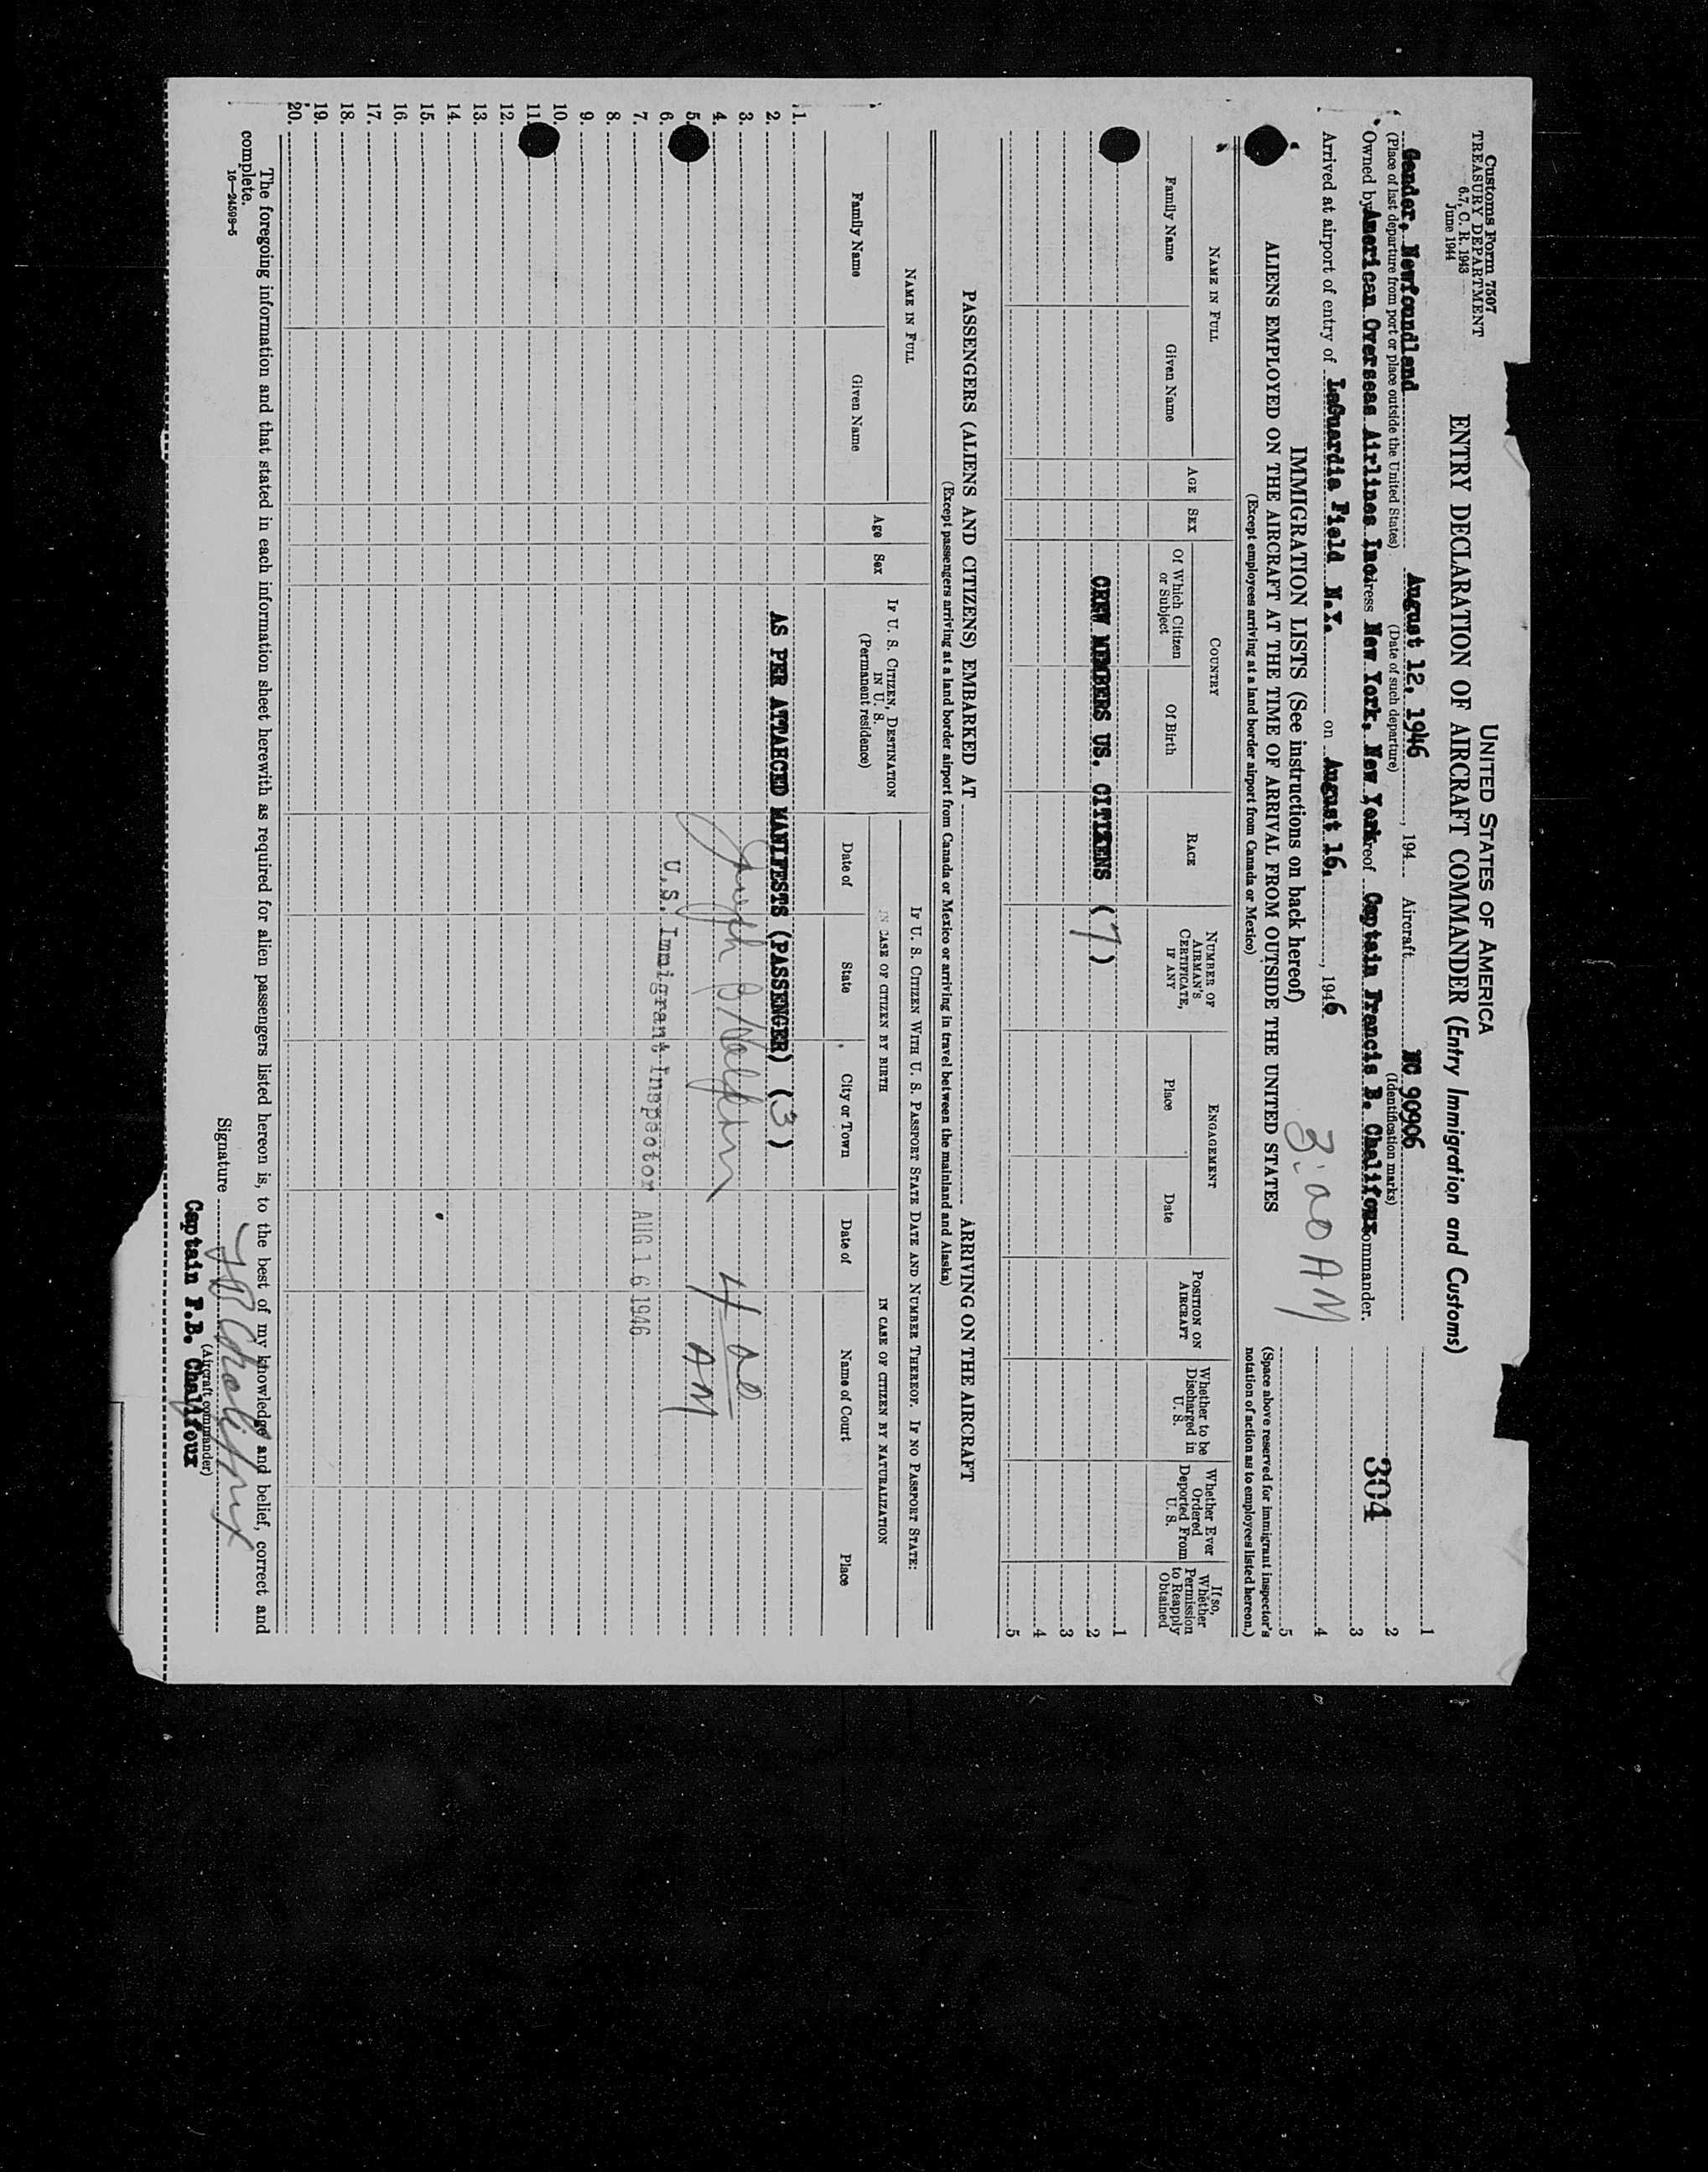 Customs Form 7507
TREASURY DEPARTMENT
6.7, C. R. 1943
June 1944
UNITED STATES OF AMERICA
ENTRY DECLARATION OF AIRCRAFT COMMANDER (Entry Immigration and Customs)
Gander, Newfoundland August 12, 1946, 194 Aircraft NC 90906
(Place of last departure from port or place outside the United States) (Date of such departure) (Identification marks)
Owned by American Overseas Airlines Inc. dress New York, New York reof Captain Francis B. Chalifoux ommander.
Arrived at airport of entry of LaGuardia Field N.Y. on August 16, 1946
304
1
2
3
4
5
(Space above reserved for immigrant inspector's
notation of action as to employees listed hereon.)
IMMIGRATION LISTS (See instructions on back hereof)
ALIENS EMPLOYED ON THE AIRCRAFT AT THE TIME OF ARRIVAL FROM OUTSIDE THE UNITED STATES
(Except employees arriving at a land border airport from Canada or Mexico)
NAME IN FULL
Family Name
Given Name
AGE
SEX
COUNTRY
Of Which Citizen or Subject
Of Birth
RACE
NUMBER OF AIRMAN'S CERTIFICATE, IF ANY
ENGAGEMENT
Place
Date
POSITION ON AIRCRAFT
Whether to be Discharged in U. S.
Whether Ever Ordered Deported From U. S.
If so, Whether Permission to Reapply Obtained
1
CREW MEMBERS US. CITIZENS (7) 2
3
4
5
PASSENGERS (ALIENS AND CITIZENS) EMBARKED AT ARRIVING ON THE AIRCRAFT
(Except passengers arriving at a land border airport from Canada or Mexico or arriving in travel between the mainland and Alaska)
NAME IN FULL
Family Name
Given Name
Age
Sex
IF U. S. CITIZEN, DESTINATION IN U. S.
(Permanent residence)
IF U. S. CITIZEN WITH U. S. PASSPORT STATE DATE AND NUMBER THEREOF. IF NO PASSPORT STATE:
IN CASE OF CITIZEN BY BIRTH
IN CASE OF CITIZEN BY NATURALIZATION
Date of
State
City or Town
Date of
Name of Court
Place
1.
2. AS PER ATTAHCED MANIFESTS (PASSENGER) (3)
3.
4.
5. AM
6. U.S. Immigrant Inspector AUG 16 1946
7.
8.
9.
10.
11.
12.
13.
14.
15.
16.
17.
18.
19.
20.
The foregoing information and that stated in each information sheet herewith as required for alien passengers listed hereon is, to the best of my knowledge and belief, correct and
complete.
16—24599-5
Signature F B Chalifoux
(Aircraft commander)
Captain F.B. Chalifoux